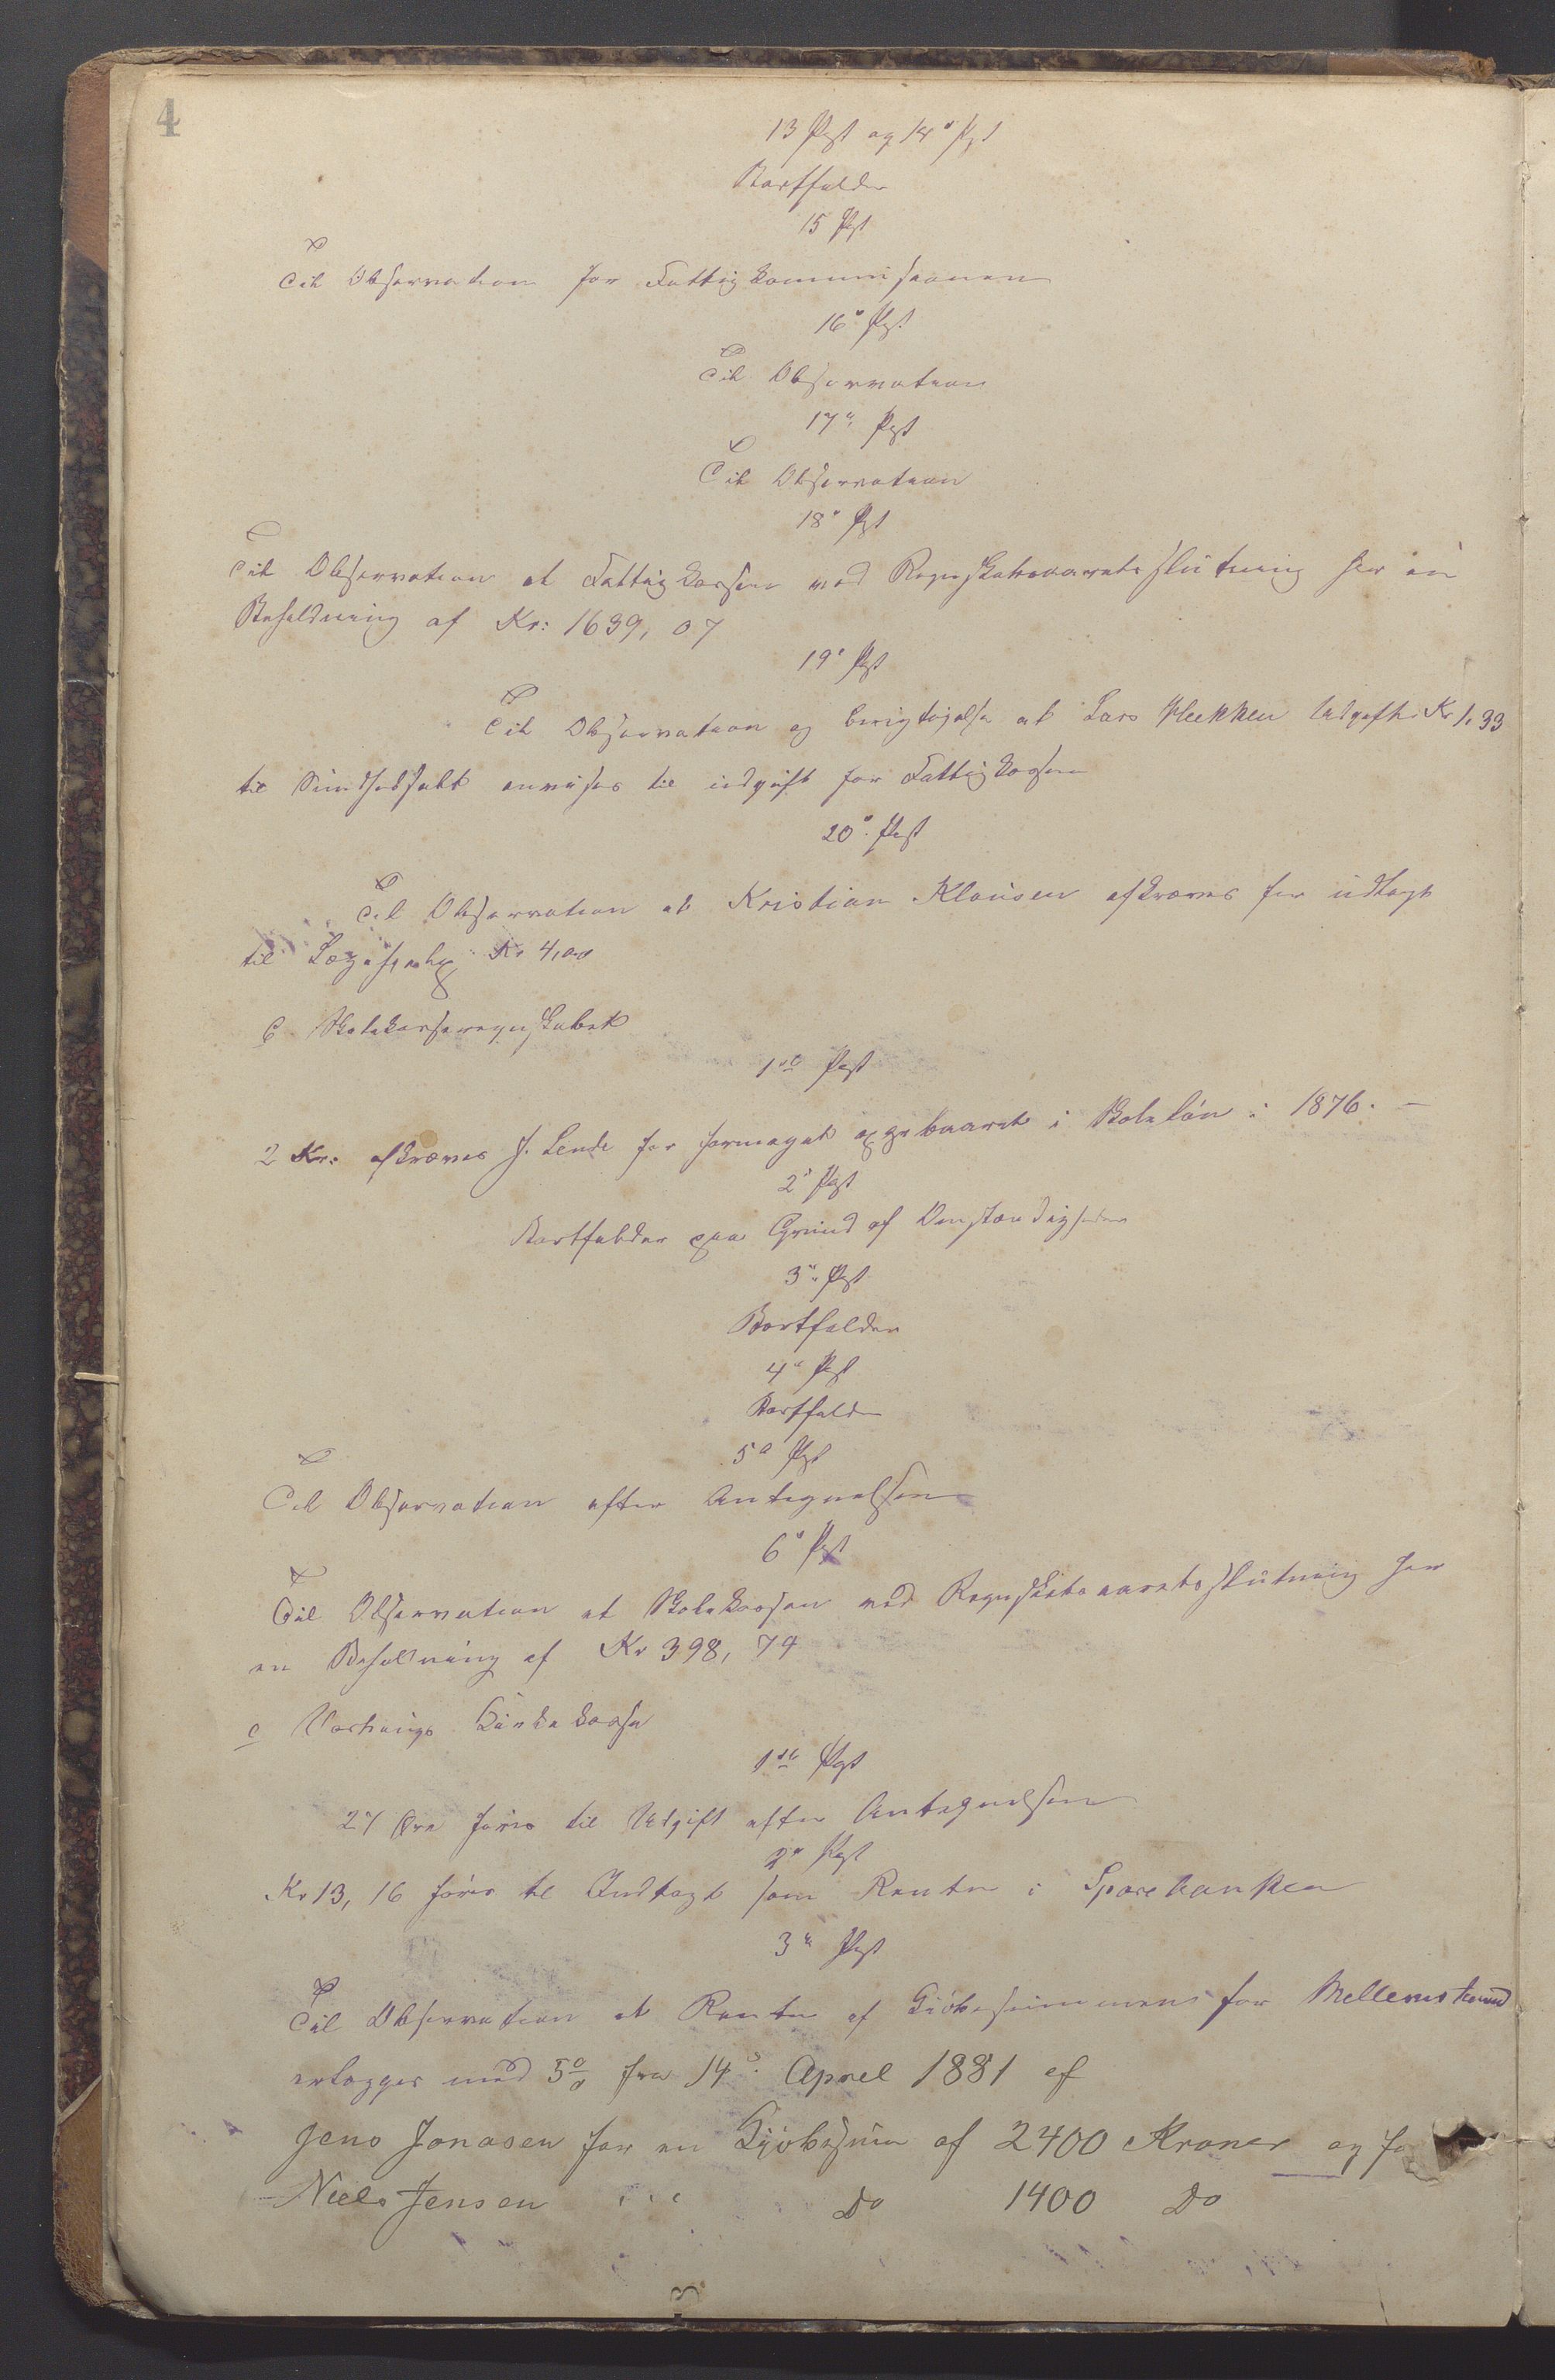 4
13 Post og 14de Post
Bortfalder
15 Post
Til Observation for Fattigkommissionen
16de Post
Til Observation
17de Post
Til Observation
18de Post
Til Observation at Fattigkassen ved Regnskabsaarets slutning har en
Beholdning af Kr: 1639,07
19de Post
Til Observation og berigtigelse at Lars Udgift Kr 1,33
til Sindssygt anvises til udgift for Fattigkassen
20de Post
Til Observation at Kristian Klausen afkræves for udlagt
til Lægehjælp Kr 4,00
C Skolekasseregnskabet
1ste Post
2 Kr: afkræves J. Lende for formeget oppebaaret i Skoleløn i 1876. –
2de Post
Bortfalder paa Grund af Omstændigheder
3de Post
Bortfalder
4de Post
Bortfalder
5te Post
Til Observation efter Antegnelsen
6te Post
Til Observation at Skolekassen ved Regnskabsaarets slutning har
en Beholdning af Kr 398,74
c Varhaugs Kirkekasse
1ste Post
27 Øre føres til Udgift efter Antegnelsen
2de Post
Kr 13,16 føres til Indtægt som Renter i Sparebanken
3de Post
Til Observation at Renter af Kjøbesummene for Mellemstrand
erlægges med 5% fra 14de April 1881 af
Jens Jonasen for en Kjøbesum af 2400 Kroner og fo
Niels Jensen " " " Do 1400 Do